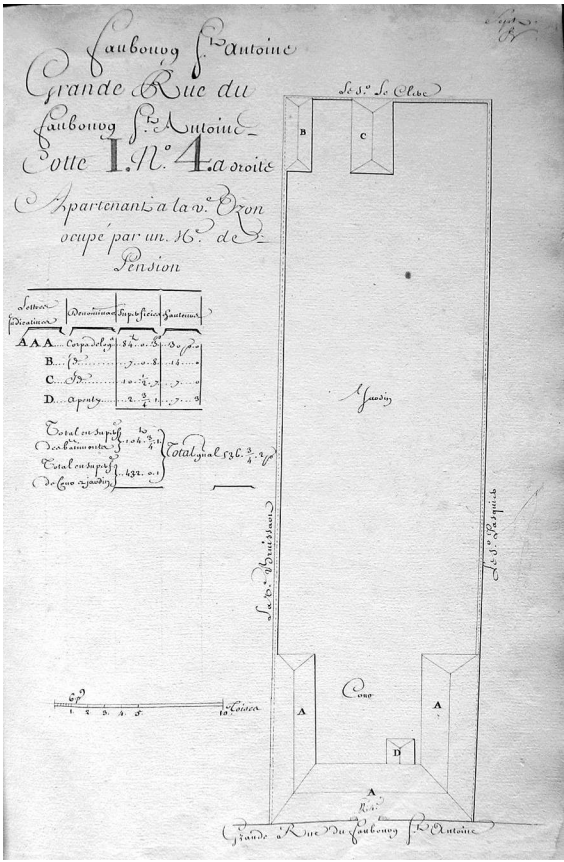 Faubourg St. Antoine
Grande Rue du
Faubourg St. Antoine
Cotte I. No. 4. a droite
Apartenant a la ve. Ozon
ocupé par un Me. de
Pension
Lettres
Indicatives
Denominaon
Superficies
Hauteurs
AAA .... Corps de log.
B .... Id.
C .... Id.
D .... apenty
Total en superf.
des batimonts
104. 3/4. 1.
Total en superf.
de Cour & jardin
432. 0. 1
Total gnal 536. 3/4. 2 p
6 pi
1. 2. 3. 4. 5. 10. Toises
Le Sr. Le Clerc
B
C
Jardin
La Ve. Bruissaon
Le Sr. Pasquier
Cour
A
A
D
A
No. 4.
Grande Rue du Faubourg St. Antoine